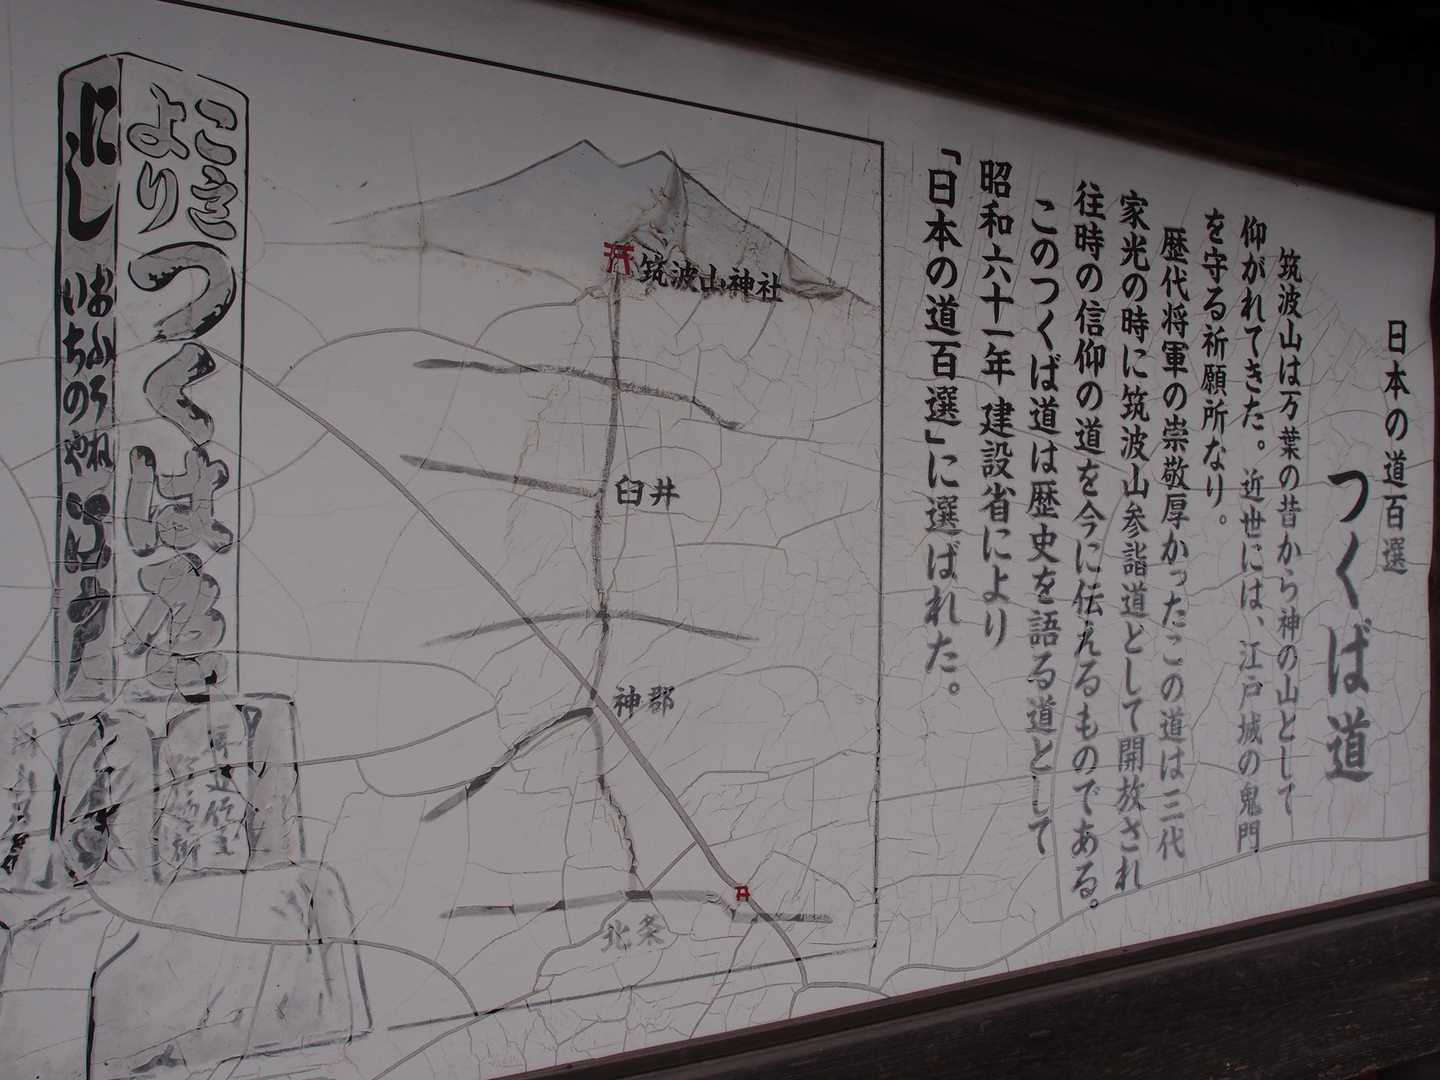 日本の道百選
つくば道
筑波山は万葉の昔から神の山として
仰がれてきた。近世には、江戸城の鬼門
を守る祈願所なり。
歴代将軍の崇敬厚かったこの道は三代
家光の時に筑波山参詣道として開放され
往時の信仰の道を今に伝えるものである。
このつくば道は歴史を語る道として
昭和六十一年 建設省により
「日本の道百選」に選ばれた。
筑波山神社
臼井
神郡
北条
これより つくば
にし
いちのや